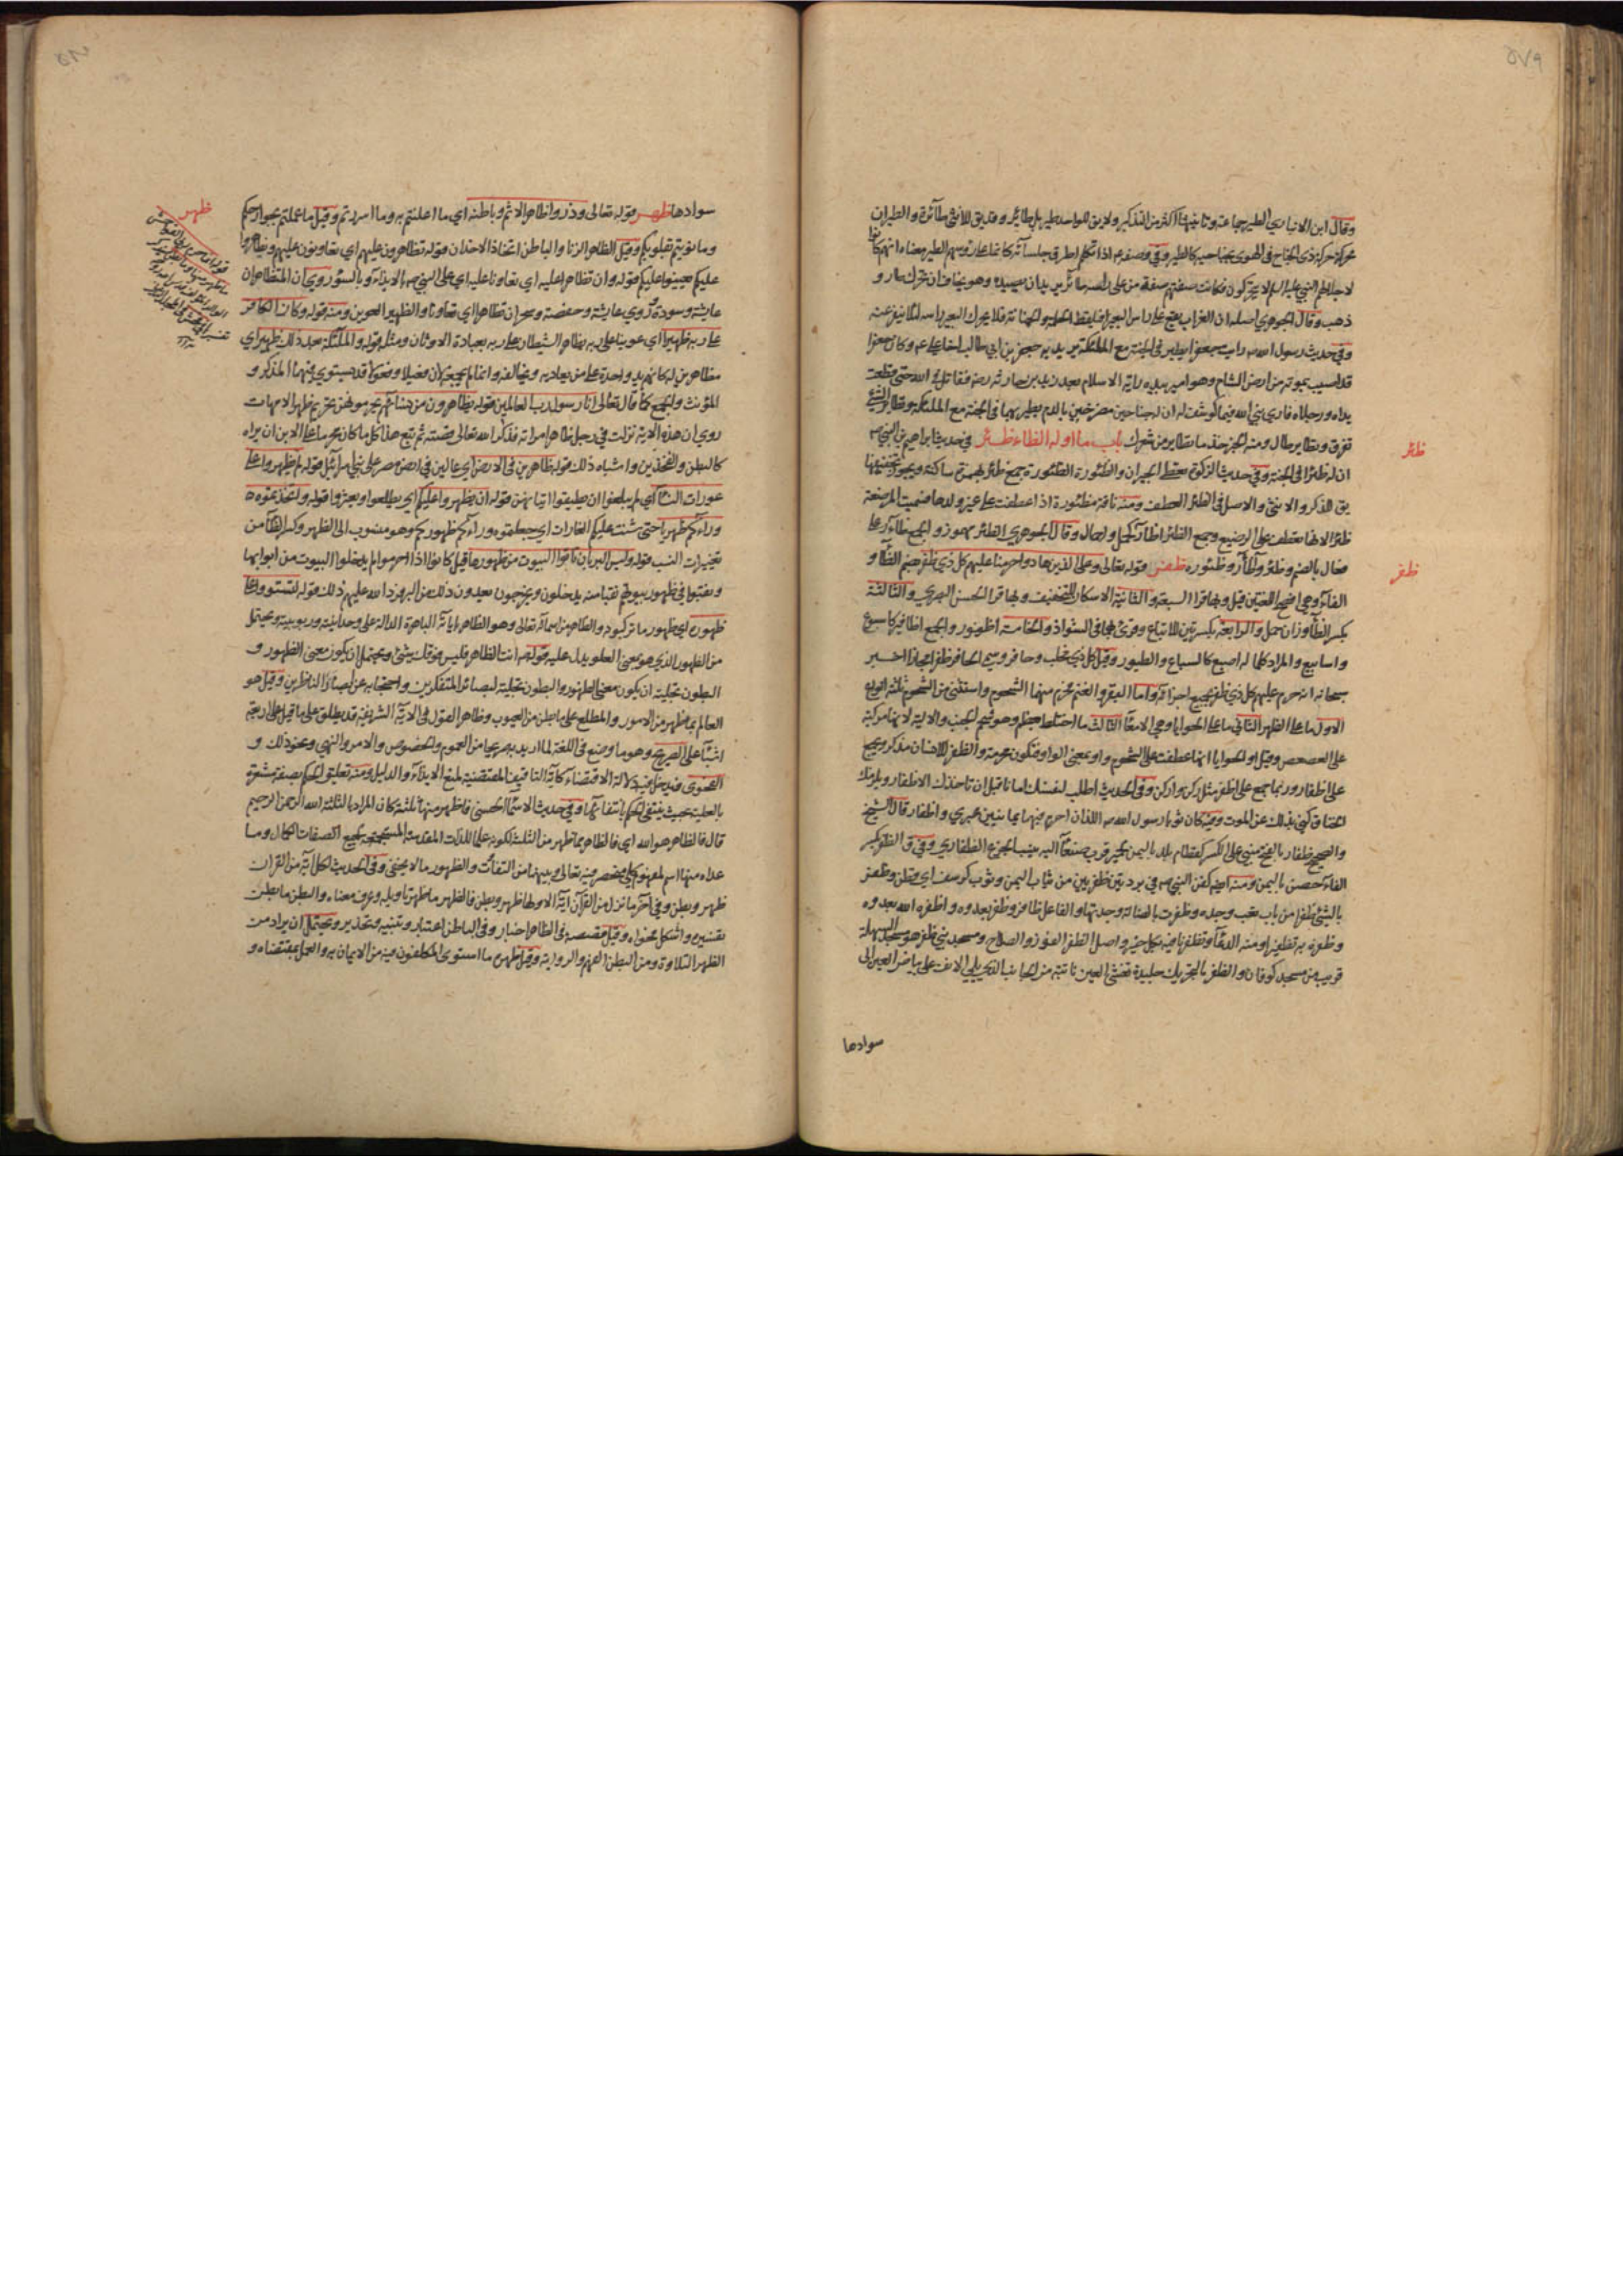 ٥٧٩
وقال ابن الانباري الطير جماعة وتانيثها اكثر من التذكير ولا يق للواحد طير بل طائر وقد يق للانثى طائرة والطيران
حركة ذي الجناح في الهوى بجناحيه كالطير وفي وصفهم اذا تكلم اطرق جلساءه كانما على رؤسهم الطير معناه انهم كانوا
لاجلالهم النبي عليه السلام لا يتحركون فكانت صفتهم صفة من على راسه طائر يريد ان يصيده وهو يخاف ان تحرك طار و
ذهب وقال الجوهري اصله ان الغراب يقع على راس البعير فيلقط الحلمة والحمنانة فلا يحرك البعير راسه لئلا ينفر عنه
وفي حديث رسول الله ص رايت جعفرا يطير في الجنة مع الملئكة يريد به جعفر بن ابي طالب اخا علي ع م وكان جعفرا
قد اصيب بموته من ارض الشام وهو امير بيده راية الاسلام بعد زيد بن حارثه رض فقاتل في الله حتى قطعت
يداه ورجلاه فاري نبي الله فيما كوشف له ان له جناحين مضرجين بالدم يطير بهما في الجنة مع الملئكة وتطاير الشئ
تفرق وتطاير طال ومنه الخبر خذ ما تطاير من شعرك باب ما اوله الظاء ظئر في حديث ابراهيم بن النبي ص
ظئر
ان له ظئرا في الجنة وفي حديث الزكوة يعطى الجيران والظئورة الظئورة جمع ظئر بهمزة ساكنة ويجوز تخفيفها
يق للذكر والانثى والاصل في الظئر العطف ومنه ناقة مظئورة اذا عطفت على غير ولدها فسميت المرضعة
ظئرا لانها تعطف على الرضيع وجمع الظئر اظآر كحمل واحمال وقال الجوهري الظئر مهموز والجمع ظآر على
فعال بالضم وظئور واظآر وظئوره ظفر قوله تعالى وعلى الذين هادوا حرمنا عليهم كل ذي ظفر بضم الظاء و
ظفر
الفاء وهي افصح اللغتين قيل وبها قرا السبعة والثانية الاسكان للتخفيف وبها قرا الحسن البصري والثالثة
بكسر الظاء وزان حمل والرابعة بكسرتين للاتباع وقرئ بهما في الشواذ والخامسة اظفور والجمع اظافير كاسبوع
واسابيع والمراد كلما له اصبع كالسباع والطيور وقيل كل ذي مخلب وحافر وسمي الحافر ظفرا مجازا اخبر
سبحانه انه حرم عليهم كل ذي ظفر بجميع اجزائه واما البقر والغنم فحرم منهما الشحوم واستثنى من الشحوم ثلثة انواع
الاول ما على الظهر الثاني ما على الحوايا وهي الامعاء الثالث ما اختلط بعظم وهو شحم الجنب والالية لانها مركبة
على العصعص وقيل او الحوايا انها عطفت على الشحوم واو بمعنى الواو فتكون محرمة والظفر للانسان مذكر ويجمع
على اظفار وربما جمع على اظفر مثل ركن واركن وفي الحديث اطلب لنفسك امانا قبل ان تاخذك الاظفار ويلزمك
الخناق كني بذلك عن الموت وفيه كان ثوبا رسول الله ص اللذان احرم فيهما يمانيين عبري واظفار قال الشيخ
والصحيح ظفار بالفتح مبني على الكسر كقطام بلد باليمن لحمير قرب صنعاء اليه ينسب الجزع الظفاري وفي ق الظفر بكسر
الفاء حصن باليمن ومنه انه كفن النبي ص في بردتين ظفريين من ثياب اليمن وثوب كرسف اي قطن وظفر
بالشئ ظفرا من باب تعب وجده وظفرت بالضالة وجدتها والفاعل ظافر وظفر بعدوه واظفره الله بعدوه
وظفره به تظفيرا ومنه الدعاء وتظفرنا فيه بكل خير واصل الظفر الفوز والصلاح ومسجد بني ظفر هو مسجد السهلة
قريب من مسجد كوفان والظفر بالتحريك جليدة تغشى العين ناتئة من الجانب الذي يلي الانف على بياض العين الى
سوادها
٥٨٠
سوادها ظهر قوله تعالى وذروا ظاهر الاثم وباطنه اي ما اعلنتم به وما اسررتم وقيل ما عملتم بجوارحكم
ظهر
وما نويتم بقلوبكم وقيل الظاهر الزنا والباطن اتخاذ الاخدان قوله تظاهرون عليهم اي تعاونون عليهم ويظاهروا
عليكم يعينوا عليكم قوله وان تظاهرا عليه اي تعاونا عليه اي على النبي ص بالايذاء وبالسوء وروي ان المتظاهران
عايشة وسودة وروي عايشة وحفصة وسحران تظاهرا اي تعاونا والظهير العوين ومنه قوله وكان الكافر
على ربه ظهيرا اي عوينا على ربه يظاهر الشيطان على ربه بعبادة الاوثان ومثل قوله والملئكة بعد ذلك ظهير اي
مظاهرين له كانهم يد واحدة على من يعاديه ويخالفه وانما لم يجمع لان فعيلا وفعولا قد يستوي فيهما المذكر و
المؤنث والجمع كما قال تعالى انا رسول رب العالمين قوله يظاهرون من نسائهم يحرمونهن تحريم ظهر الامهات
روي ان هذه الاية نزلت في رجل ظاهر امراته فذكر الله تعالى قصته ثم تبع هذا كل ما كان محرما على الابن ان يراه
كالبطن والفخذين واشباه ذلك قوله ظاهرين في الارض اي عالين في ارض مصر على بني اسرائيل قوله لم يظهروا على
عورات النساء اي لم يبلغوا ان يطيقوا اتيانهن قوله ان يظهروا عليكم اي يطلعوا ويعثروا قوله واتخذتموه
وراءكم ظهريا حتى شنت عليكم الغارات اي جعلتموه وراء ظهوركم وهو منسوب الى الظهر وكسر الظاء من
تغييرات النسب قوله وليس البر بان تاتوا البيوت من ظهورها قيل كانوا اذا احرموا لم يدخلوا البيوت من ابوابها
ونقبوا في ظهور بيوتهم نقبا منه يدخلون ويخرجون يعيدون ذلك من البر فرد الله عليهم ذلك قوله لتستووا على
ظهوره اي ظهور ما تركبون والظاهر من اسمائه تعالى وهو الظاهر باياته الباهرة الدالة على وحدانيته وربوبيته ويحتمل
من الظهور الذي هو بمعنى العلو يدل عليه قوله ص انت الظاهر فليس فوقك شئ ويحتمل ان يكون معنى الظهور و
البطون تجليه ان يكون معنى الظهور والبطون تجليه لبصائر المتفكرين واحتجابه عن ابصار الناظرين وقيل هو
العالم بما ظهر من الامور والمطلع على ما بطن من الغيوب وظاهر القول في الاية الشريفة قد يطلق على ما قيل على اربعة
اشياء على الصريح وهو ما وضع في اللغة لما اريد به صريحا من العموم والخصوص والامر والنهي ونحو ذلك و
الفحوى فيدخل فيه دلالة الاقتضاء كاية التافيف المقتضية لمنع الايذاء والدليل ومنه تعليق الحكم بصفة مشعرة
بالعلية بحيث ينتفي الحكم بانتفائها وفي حديث الاسماء الحسنى فاظهر منها ثلثة كان المراد بالثلثة الله الرحمن الرحيم
قال فالظاهر هو الله اي فالظاهر مما ظهر من الثلث لكونه علما للذات المقدسة المستجمعة لجميع الصفات الكمال وما
عداه منها اسم لمفهوم كلي منحصر فيه تعالى وبينهما من التفاوت والظهور ما لا يخفى وفي الحديث لكل آية من القرآن
ظهر وبطن وفي آخر ما نزل من القرآن آية الا ولها ظهر وبطن فالظهر ما ظهر تاويله وعرف معناه والبطن ما بطن
تفسيره واشكل فحواه وقيل قصصه في الظاهر اخبار وفي الباطن اعتبار وتنبيه وتحذير ويحتمل ان يراد من
الظهر التلاوة ومن البطن الفهم والرواية وقيل ظهره ما استوى المكلفون فيه من الايمان به والعمل بمقتضاه و